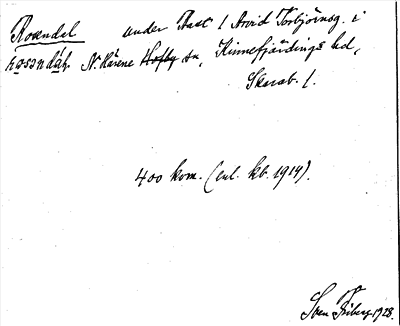 Rosendal under Bast 1 Arvid Torbjörnsg. i
N. Kärene Hofby sn, Kinnefjärdings hd,
Skarab. l.
400 kvm. (enl. kb. 1914).
Sven Friberg 1928.